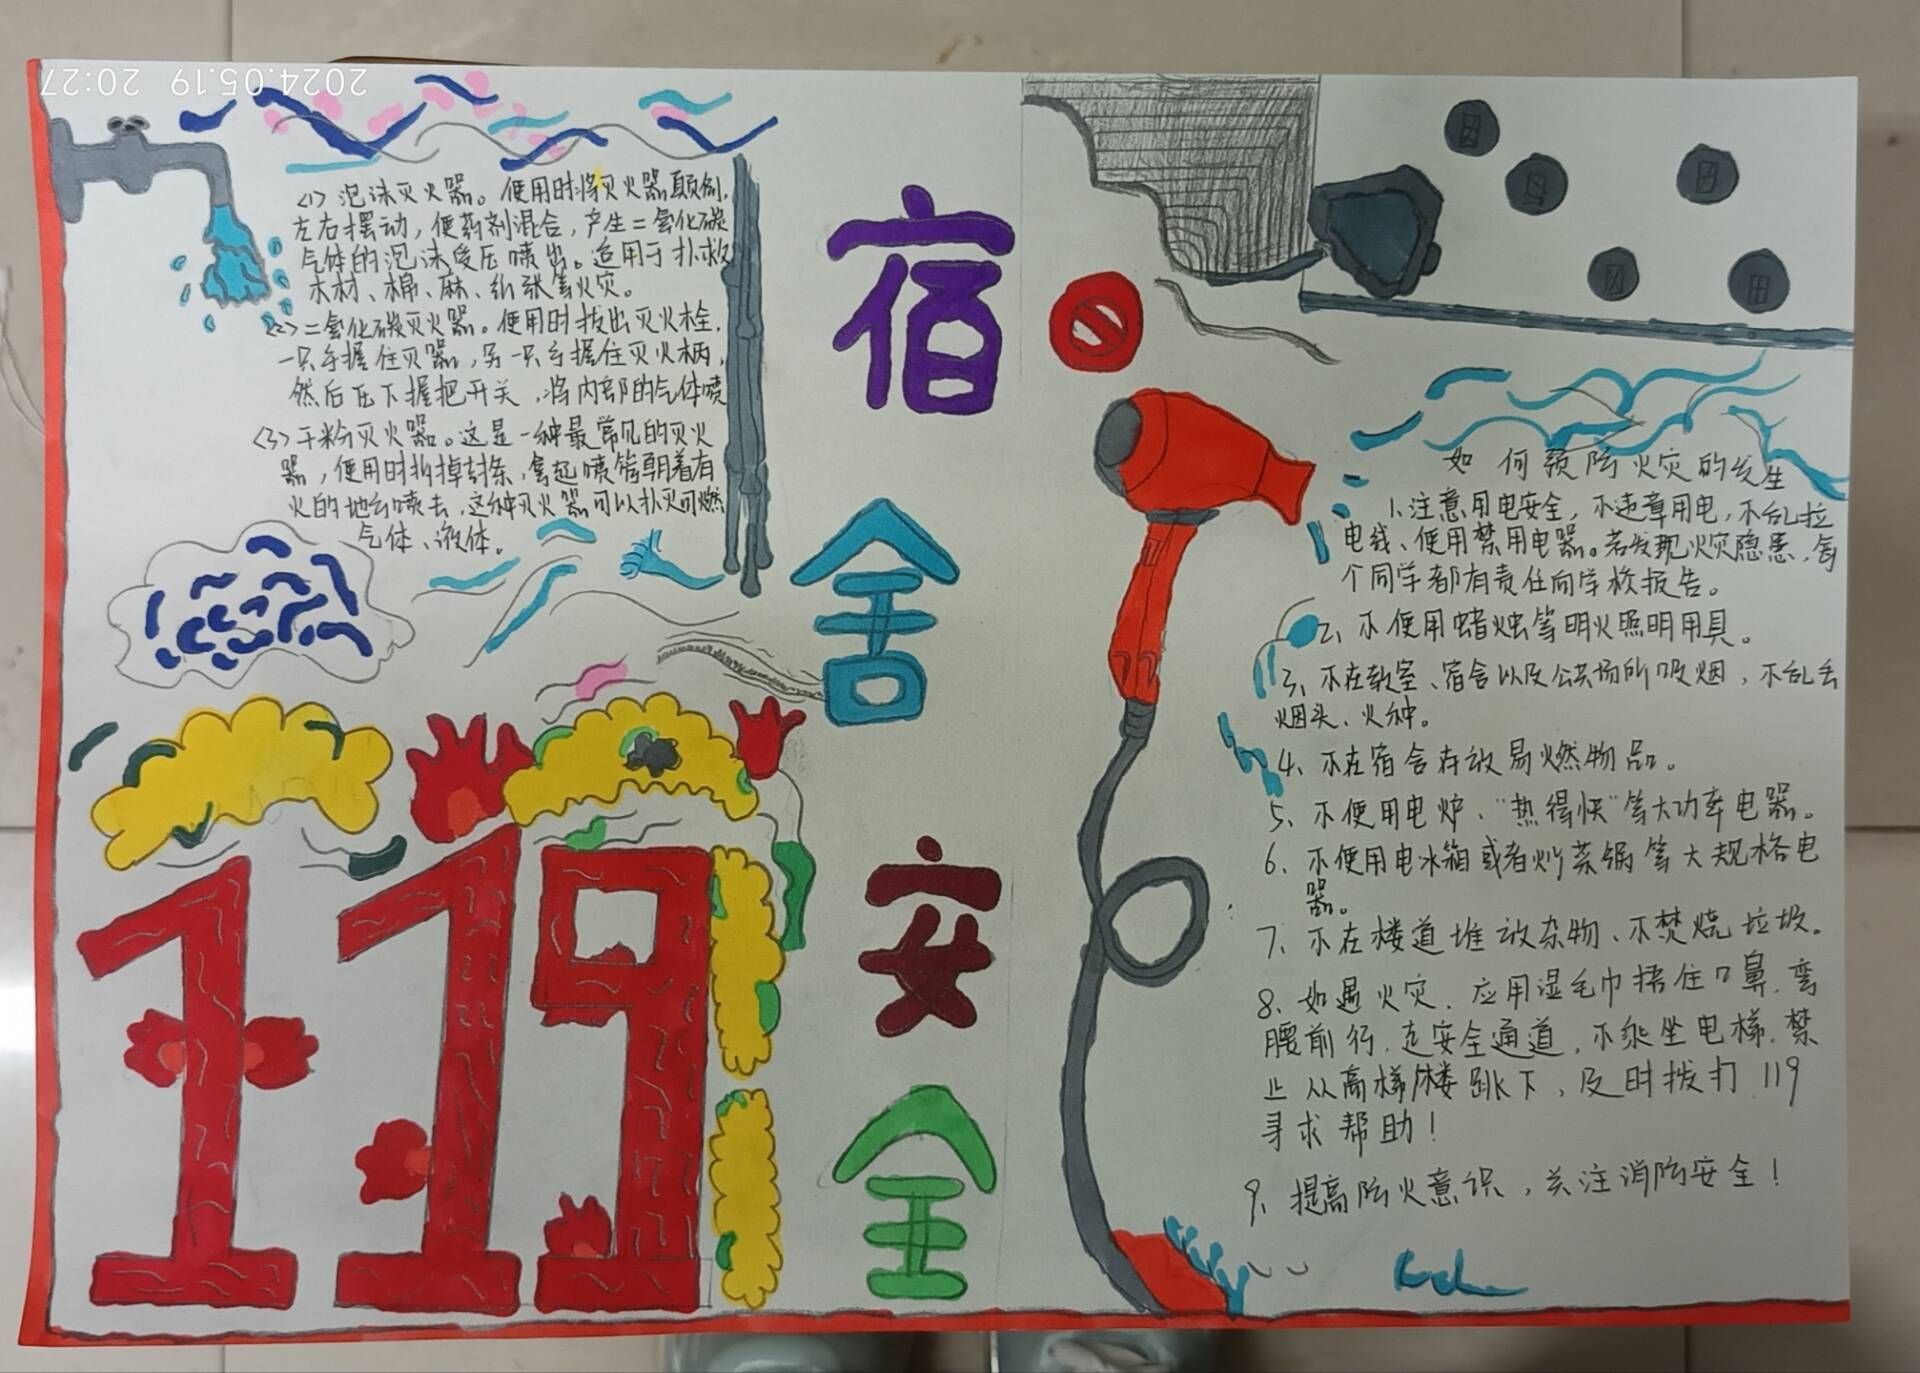 2024.05.19 20:27
<1> 泡沫灭火器。使用时将灭火器颠倒,
左右摆动,使药剂混合,产生二氧化碳
气体的泡沫受压喷出。适用于扑救
木材、棉、麻、纸张等火灾。
<2> 二氧化碳灭火器。使用时拔出灭火栓,
一只手握住灭器,另一只手握住灭火柄,
然后压下握把开关,将内部的气体喷
<3> 干粉灭火器。这是一种最常见的灭火
器,使用时拆掉封条,拿起喷管朝着有
火的地方喷去,这种灭火器可以扑灭可燃
气体、液体。
119
宿
舍
安
全
如何预防火灾的发生
1、注意用电安全,不违章用电,不乱拉
电线、使用禁用电器。若发现火灾隐患,每
个同学都有责任向学校报告。
2、不使用蜡烛等明火照明用具。
3、不在教室、宿舍以及公共场所吸烟,不乱丢
烟头、火种。
4、不在宿舍存放易燃物品。
5、不使用电炉、“热得快”等大功率电器。
6、不使用电冰箱或者炒菜锅等大规格电
器。
7、不在楼道堆放杂物、不焚烧垃圾。
8、如遇火灾,应用湿毛巾捂住口鼻,弯
腰前行,走安全通道,不乘坐电梯,禁
止从高梯/楼跳下,及时拨打119
寻求帮助!
9、提高防火意识,关注消防安全!